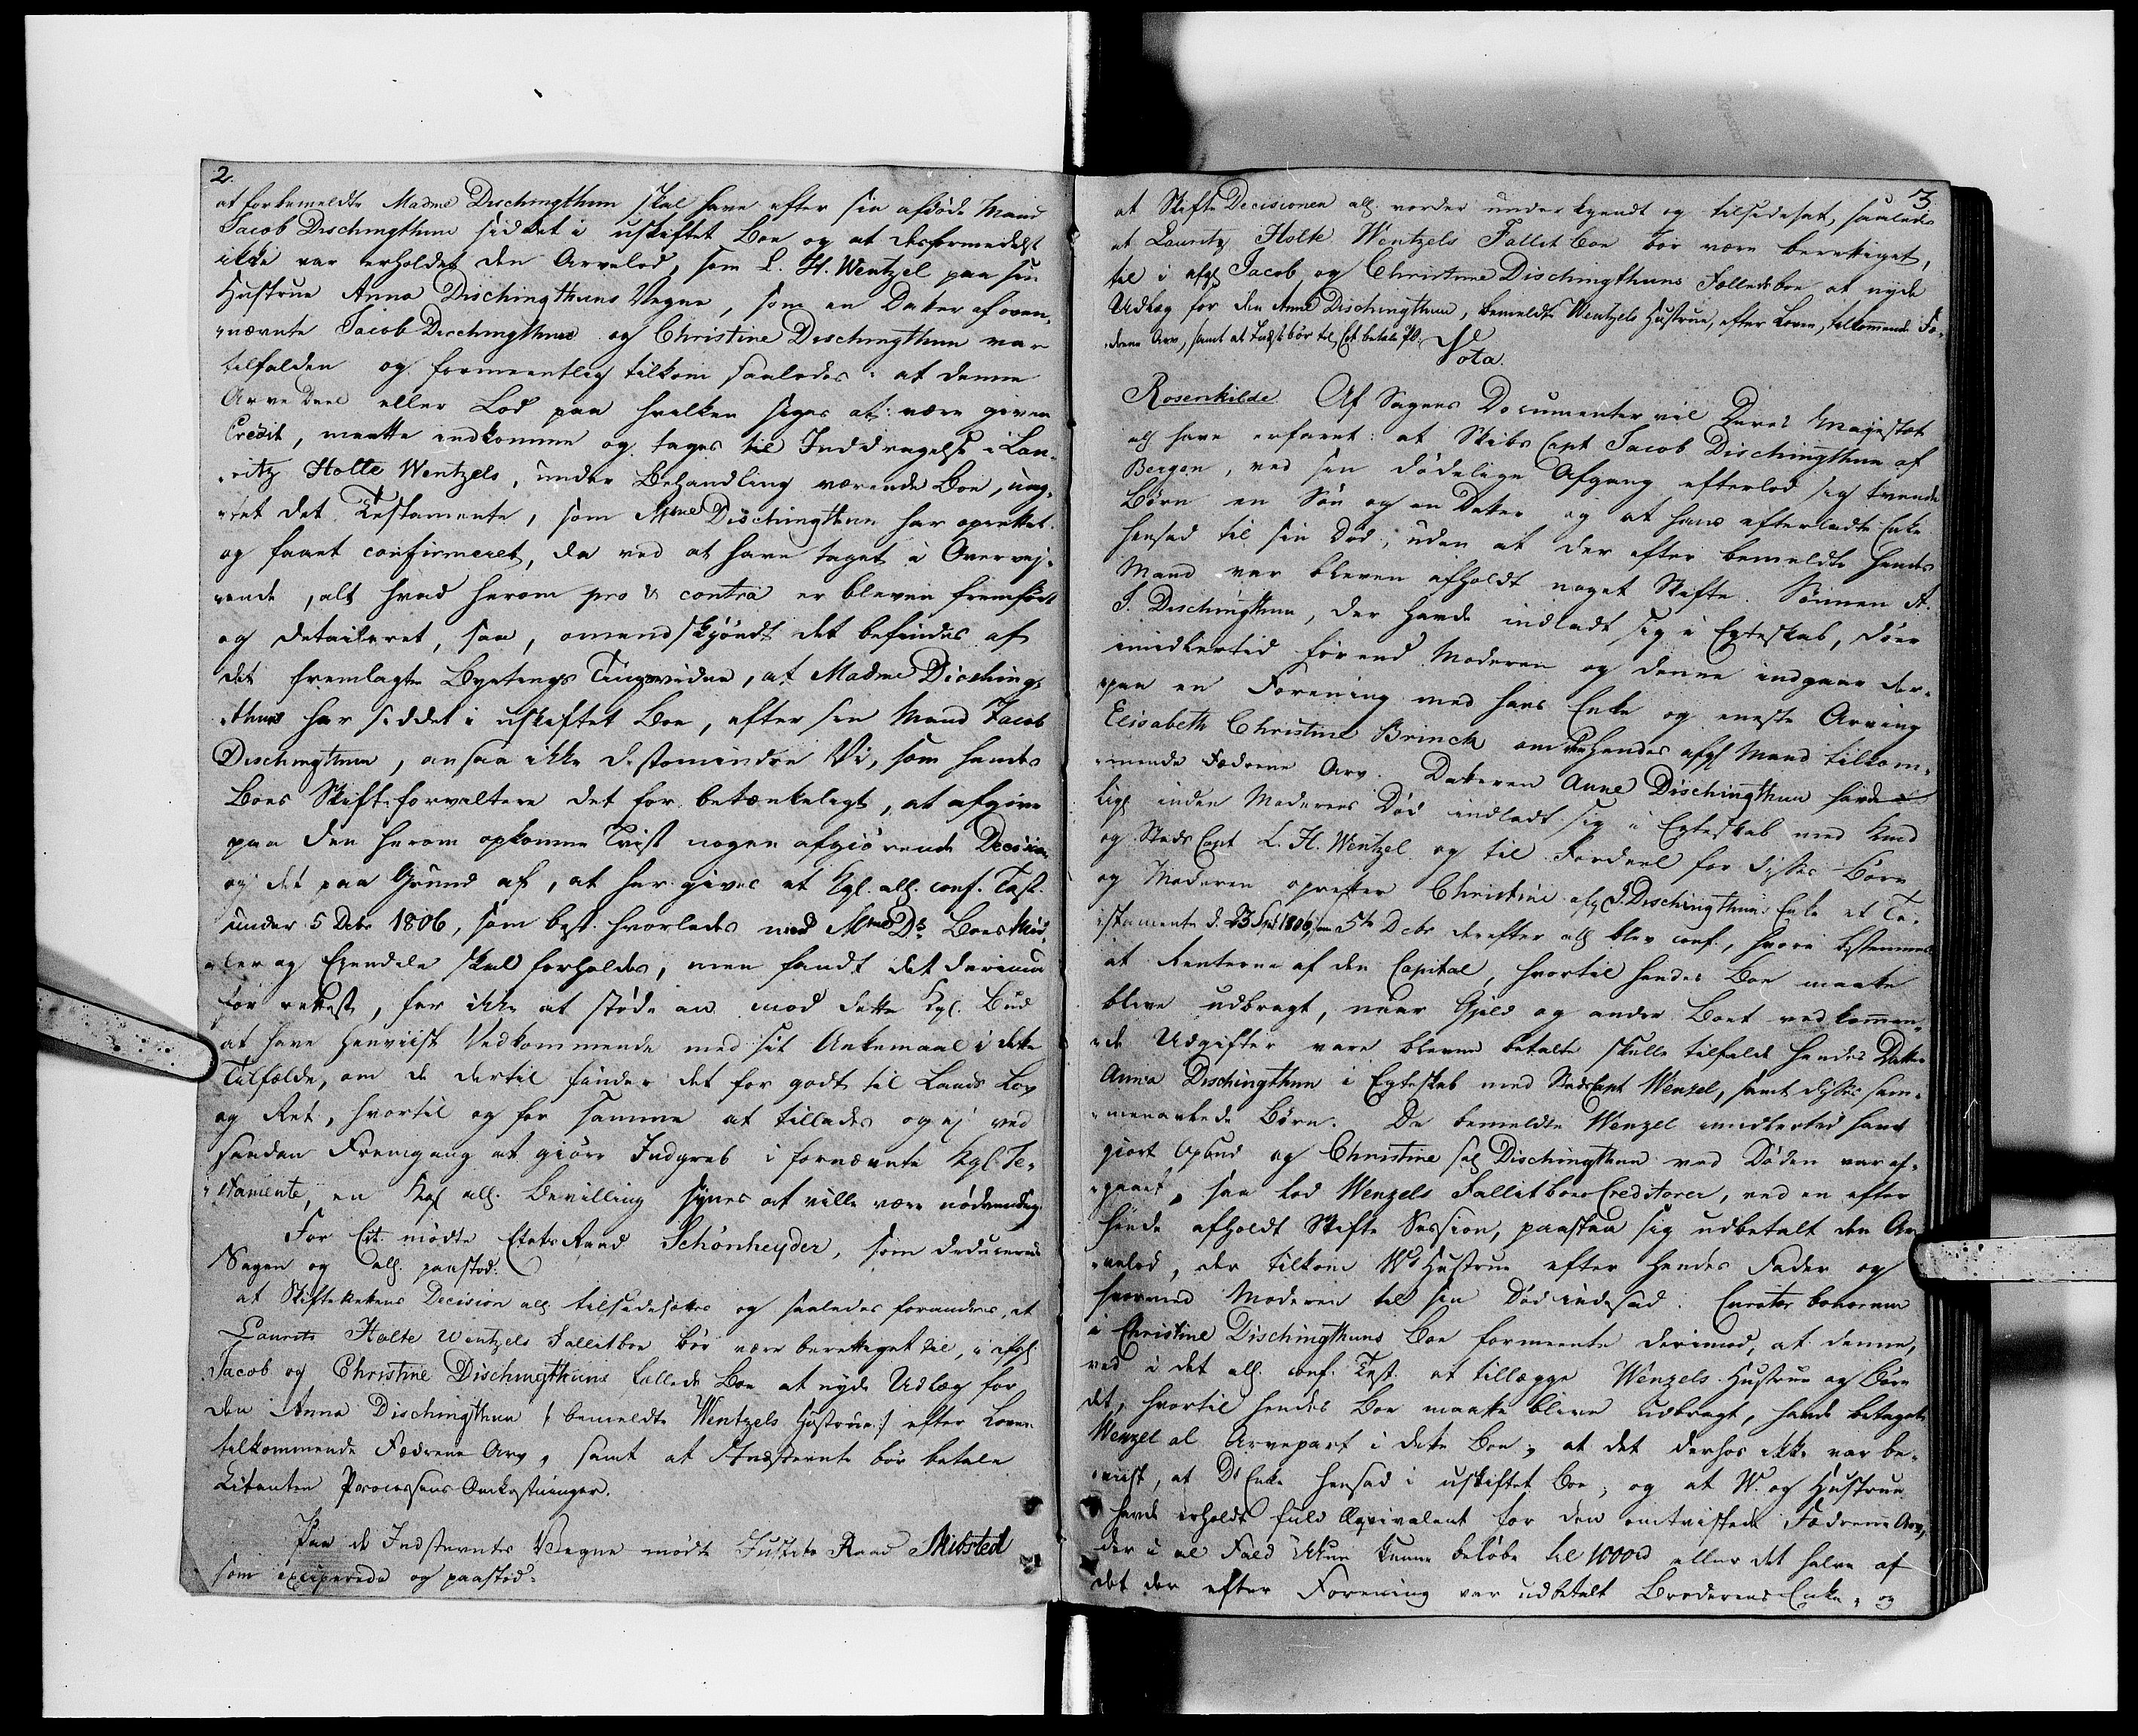 2.
at forbemeldte Madme Dischingthun skal have efter sin afdøde Mand
Jacob Dischingthun siddet i uskiftet Boe og at desformedelst
ikke var erholdet den Arvelod, som L. H. Wentzel paa sin
Hustrue Anna Dischingthuns Vegne, som en Datter af oven-
nævnte Jacob Dischingthun og Christine Dischingthun var
tilfalden og formeentlig tilkom saaledes: at denne
Arve Deel eller Lod paa hvilken siges at være given
Credit, maatte indkomme og tages til Inddragelse i Lau-
ritz Holte Wentzels, under Behandling værende Boe, uag-
tet det Testamente, som Mme Dischingthun har oprettet
og faaet confirmeret, da ved at have taget i Overvej-
ende, alt hvad herom pro & contra er bleven fremført
og detailleret, saa, omendskjøndt det befindes af
det fremlagte Byetings Tingsvidne, at Madme Disching-
thun har siddet i uskiftet Boe, efter sin Mand Jacob
Dischingthun, ansaa ikke destomindre Vi, som hendes
Boes Skifteforvaltere det for betænkeligt, at afgive
paa den herom opkomne Tvist nogen afgiørende Decision
og det paa Grund af, at her gives et Kgl. all. conf. Test.
under 5 Debr 1806, som best. hvorledes med Mme Ds Boes Mid-
ler og Ejendele skal forholdes, men fandt det derimod
for rettest, for ikke at støde an mod dette Kgl. Bud
at have henviist Vedkommende med sit Ankemaal i dette
Tilfælde, om de dertil finder det for godt til Lands Lov
og Ret, hvortil og for samme at tillades og ej ved
saadan Fremgang at giøre Indgreb i fornævnte Kgl. Te-
stamente, en Kgl all. Bevilling synes at ville være nødvendig.
For Cit. mødte Etats Raad Schönheyder, som deducerede
Sagen og all. paastod:
at Skifterettens Decision all. tilsidesættes og saaledes forandres, at
Lauritz Holte Wentzels Fallitboe bør være berettiget til, i afgl.
Jacob og Christine Dischingthuns fælleds Boe at nyde Udlæg for
den Anna Dischingthun /: bemeldte Wentzels Hustrue :/ efter Loven
tilkommende Fædrene Arv, samt at Indstevnte bør betale
Citanten Processens Omkostninger.
Paa de Indstevntes Vegne mødte Justits Raad Skibsted
som exciperede og paastod:
3.
at Skifte Decisionen all. vorder underkjendt og tilsidesat, saaledes
at Lauritz Holte Wentzels Fallit Boe bør være berettiget,
til i afgl Jacob og Christine Dischingthuns Fælledsboe at nyde
Udlæg for den Anna Dischingthun, bemeldte Wentzels Hustrue, efter Loven, tilkommende Fæ-
drene Arv, samt at Indst. bør til Cit. betale
Vota.
Rosenkilde Af Sagens Documenter vil Deres Majestæt
all have erfaret: at Skibs Capt Jacob Dischingthun af
Bergen, ved sin dødelige Afgang efterlod sig tvende
Børn en Søn og en Datter og at hans efterladte Enke
hensad til sin Død; uden at der efter bemeldte hendes
Mand var bleven afholdt noget Skifte. Sønnen A.
J. Dischingthun, der havde indladt sig i Egteskab, døer
imidlertid førend Moderen og denne indgaaer der-
paa en Forening med hans Enke og eneste Arving
Elisabeth Christine Brinck om den hendes afgl Mand tilkom-
mende Fædrene Arv. Datteren Anne Dischingthun havde
ligl inden Moderens Død indladt sig i Egteskab med
og Stads Capt L. H. Wentzel og til Fordeel for disses Børn
og Moderen opretter Christine afgl J. Dischingthuns Enke et Te-
stamente d. 23 Sept 1806, som 5te Debr derefter all blev conf., hvori bestemmes
at Renterne af den Capital, hvortil hendes Boe maatte
blive udbragt, naar Gjeld og andre Boet vedkommen-
de Udgifter vare blevne betalte skulle tilfalde hendes Datter
Anna Dischingthun i Egteskab med Stads Capt Wenzel, samt disses sam-
menavlede Børn. Da bemeldte Wenzel imidlertid havde
giort Opbud og Christine sal Dischingthun ved Døden var af-
gaaet, saa lod Wenzels Fallitboes Creditorer, ved en efter
hende afholdt Skifte Session, paastaa sig udbetalt den Ar-
velod, der tilkom Ws Hustrue efter hendes Fader og
hvormed Moderen til sin Død indesad. Curator bonorum
i Christine Dischingthuns Boe formeente derimod, at denne,
ved i det all. conf. Test. at tillægge Wenzels Hustrue og Børn
det, hvortil hendes Boe maatte blive udbragt, havde betaget
Wenzel al Arvepart i dette Boe; at det derhos ikke var be-
viist, at Ds Enke hensad i uskiftet Boe; og at W. og Hustrue
havde erholdt fuld Æqvivalent for den omtvistede Fædrene Arv,
der i al Fald ikkun kunne beløbe til 1000rd eller det halve af
det der efter Forening var udbetalt Broderens Enke, og